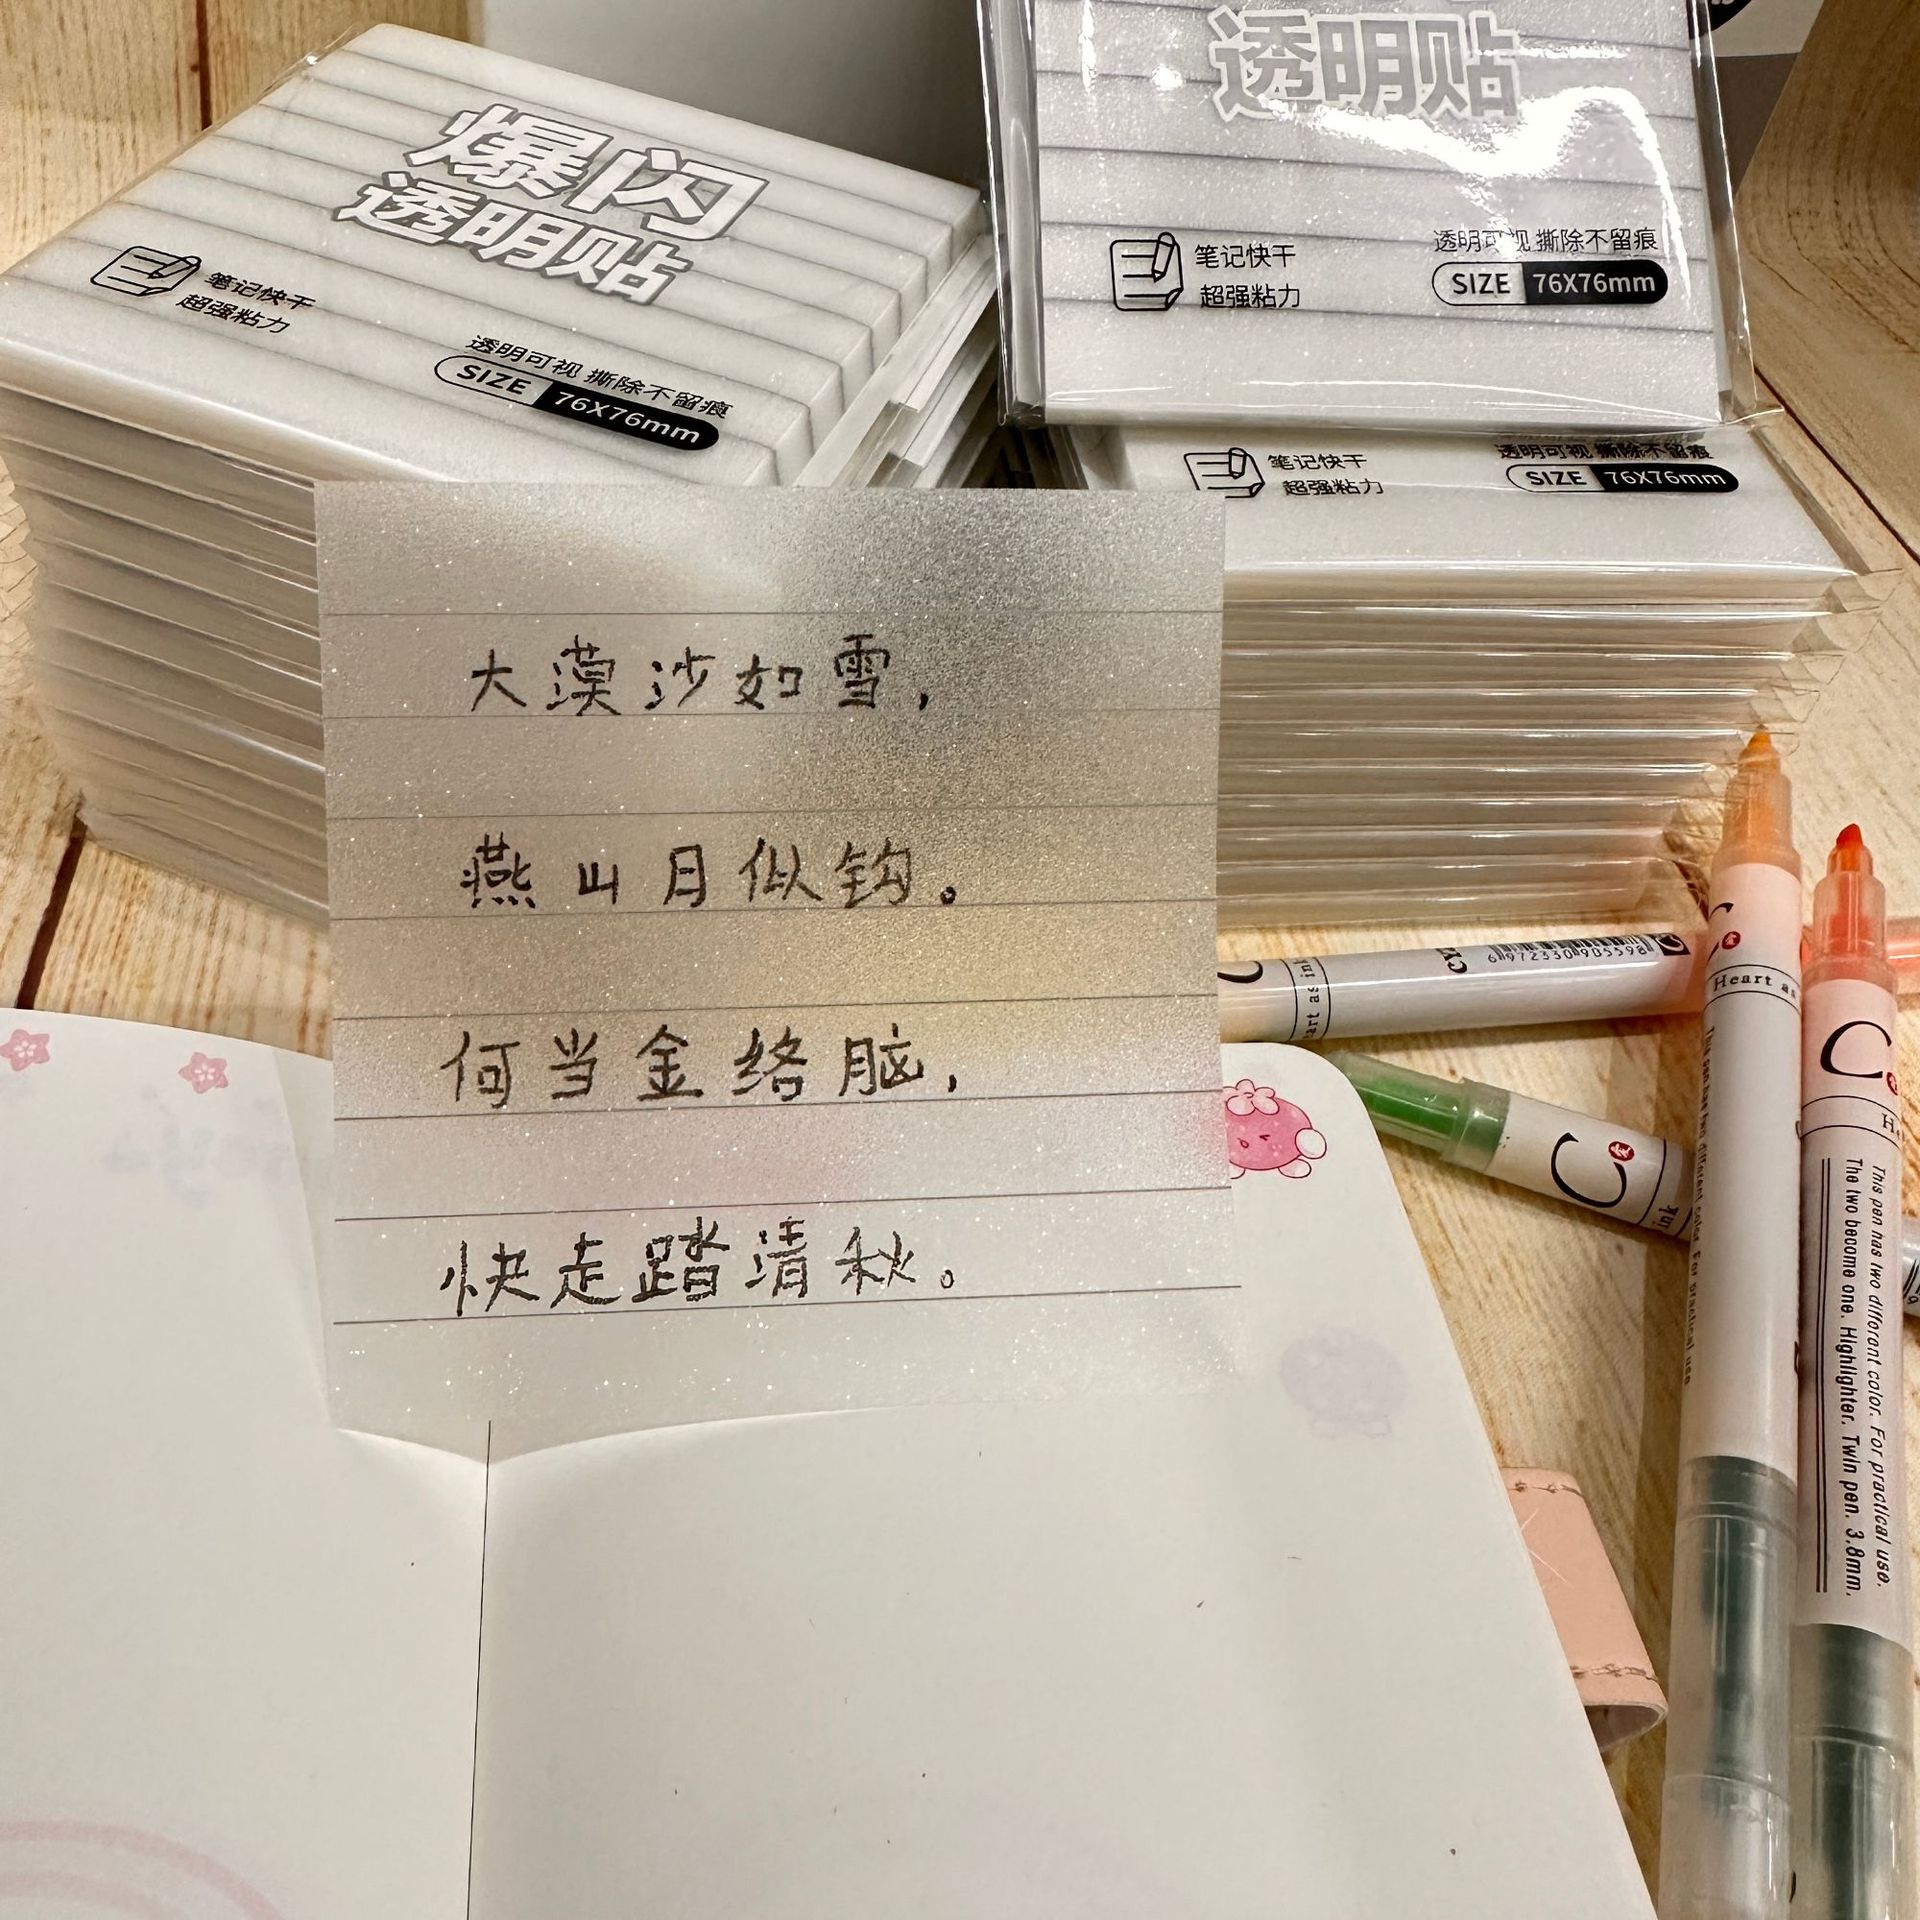 爆闪
透明贴
笔记快干
超强粘力
透明可视 撕除不留痕
SIZE 76X76mm
透明贴
笔记快干
超强粘力
透明可视 撕除不留痕
SIZE 76X76mm
笔记快干
超强粘力
透明可视 撕除不留痕
SIZE 76X76mm
大漠沙如雪,
燕山月似钩。
何当金络脑,
快走踏清秋。
6 972330 905598
C
art as ink
C
Heart as
This pen has two different color. For practical use.
C
ink
C
This pen has two different color. For practical use.
The two become one. Highlighter. Twin pen. 3.8mm.